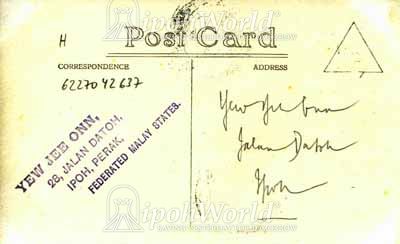 H
Post Card
CORRESPONDENCE
ADDRESS
6227042637
YEW JEE ONN,
28, JALAN DATOH,
IPOH, PERAK,
FEDERATED MALAY STATES.
Yew Jee Onn
Jalan Datoh
Ipoh
ipohWorld